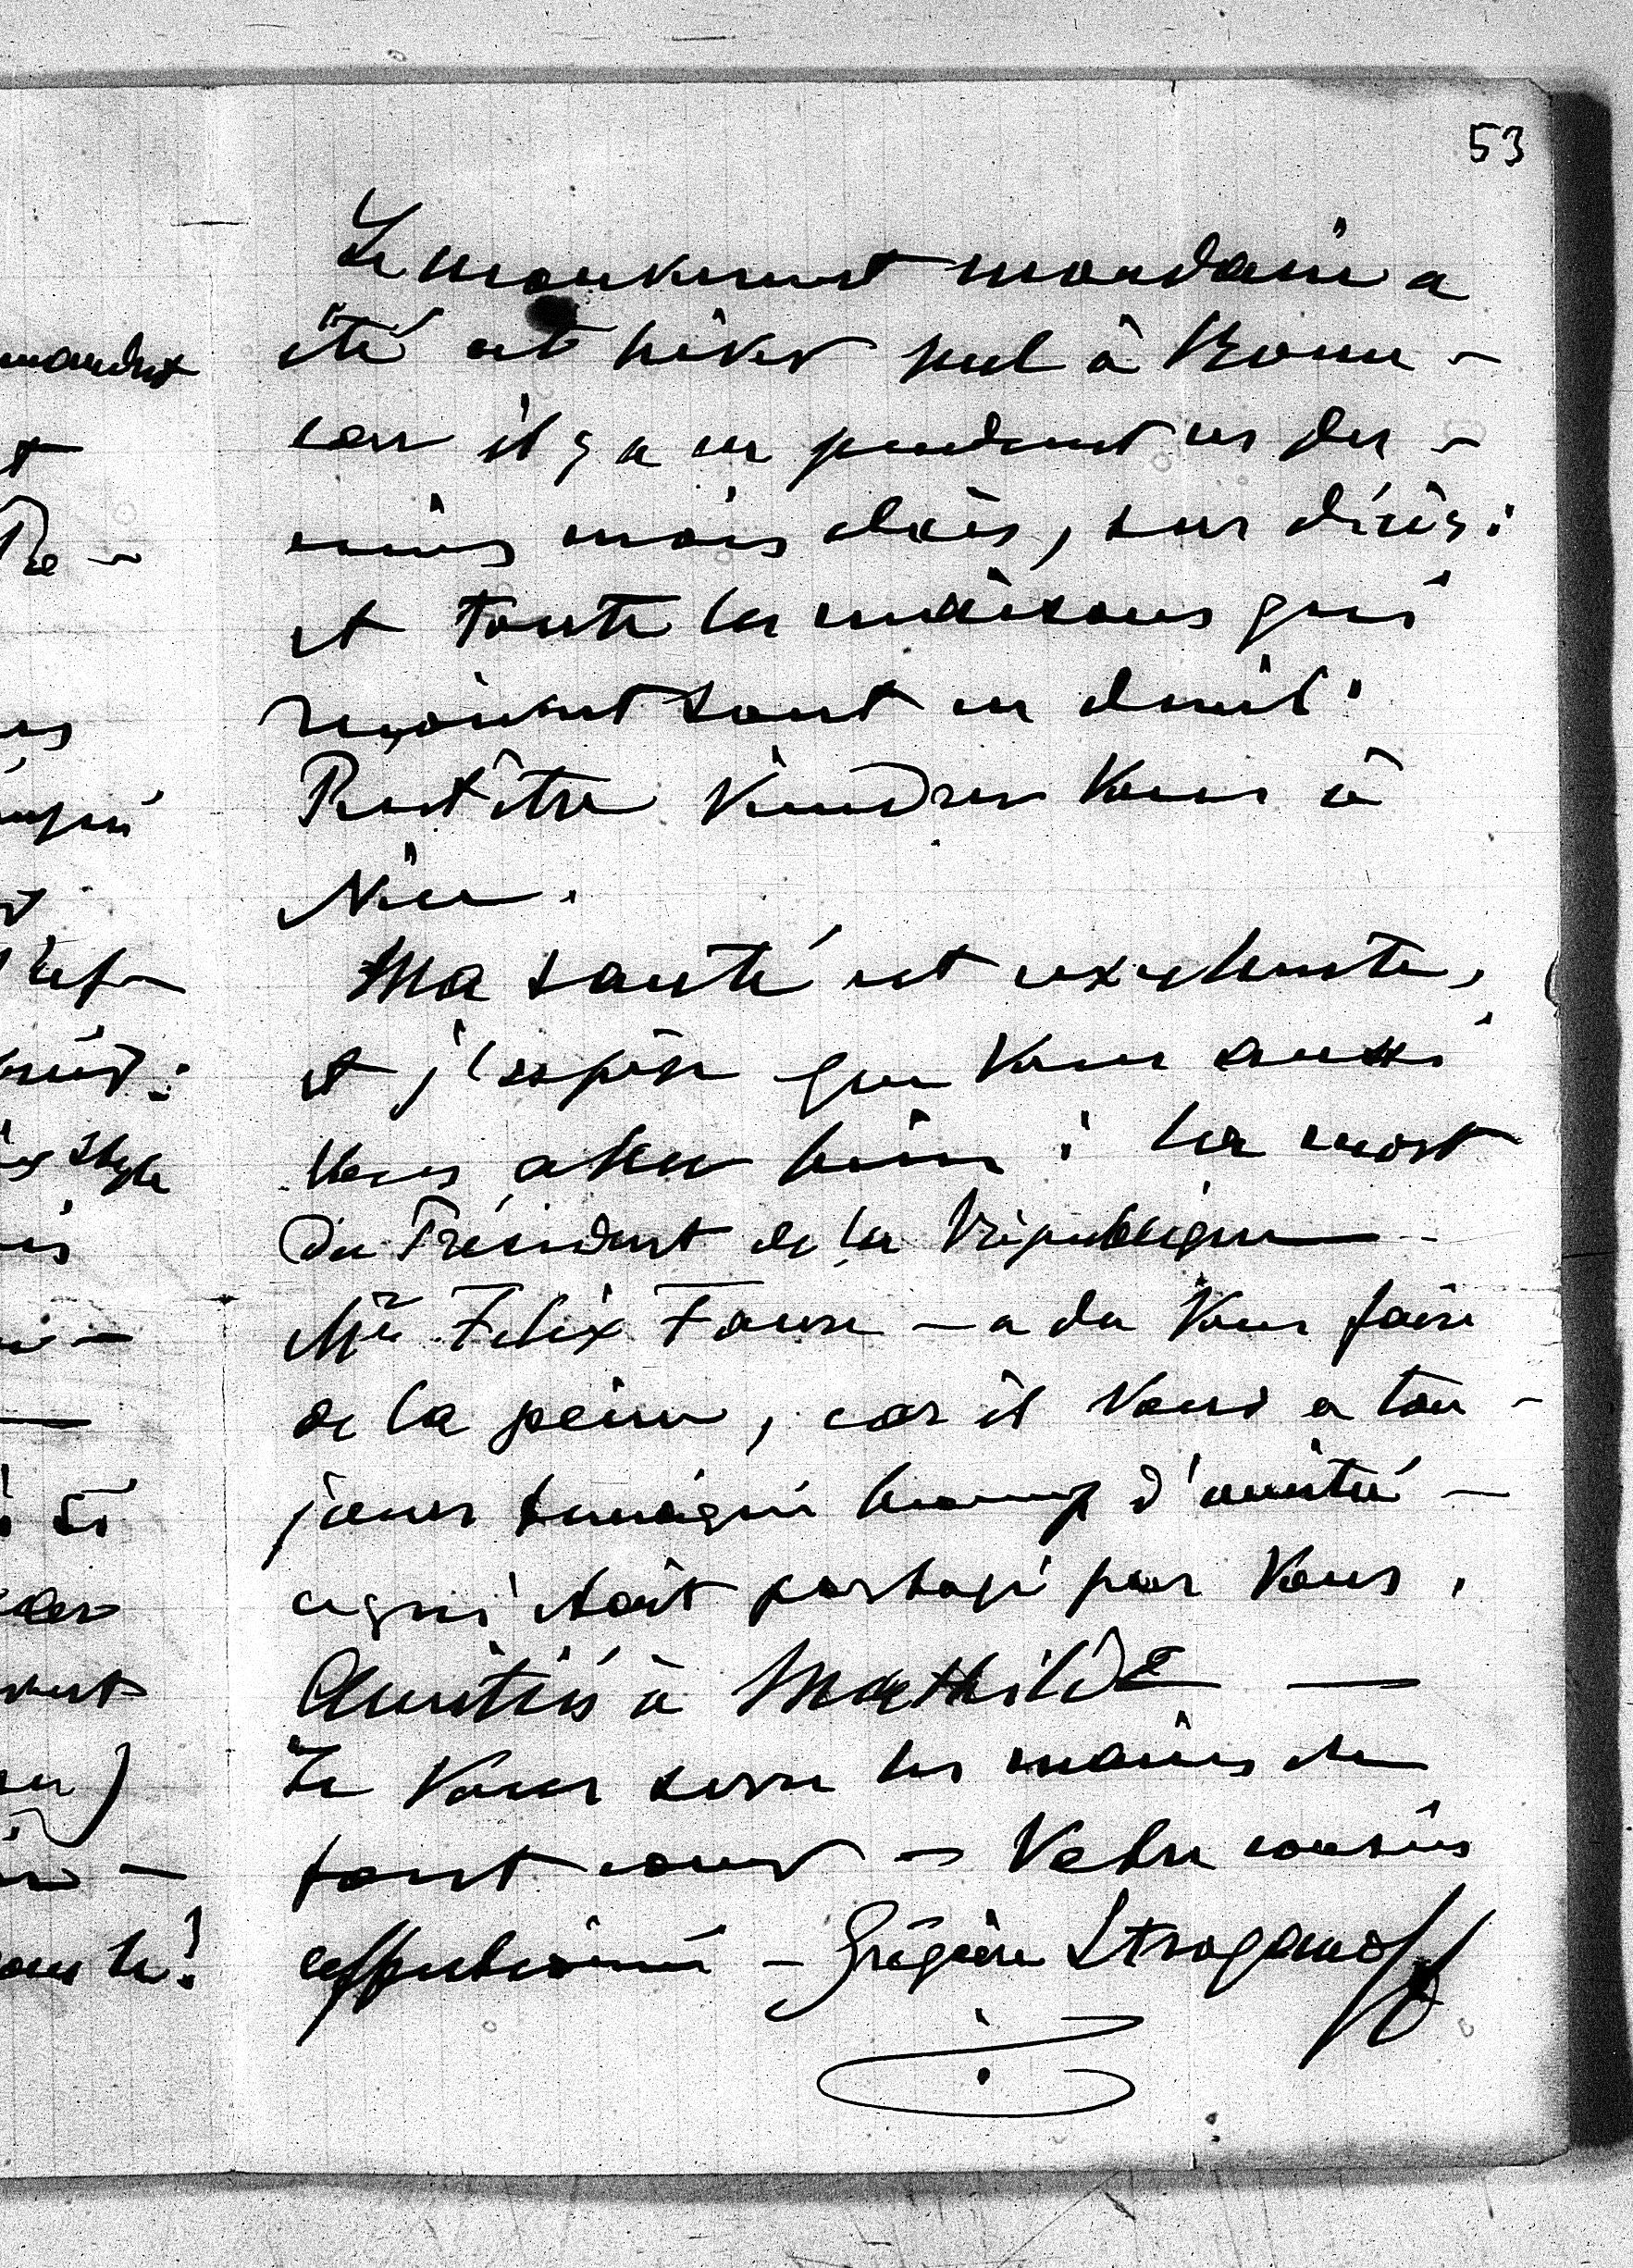 53
Le mouvement mondain a
été cet hiver nul à Rome -
car il y a eu pendant ces der -
niers mois décès, sur décès:
et toute les maisons qui
reçoivent sont en deuil.
Peut être viendrez Vous à
Nice.
Ma santé est excellente,
et j'espère que Vous aussi
Vous allez bien: la mort
du Président de la République
Mr Felix Faure - a du Vous faire
de la peine, car il Vous a tou -
jours temoigné beaucoup d'amitié -
ce qui était partagé par Vous.
Amitiés à Mathilde -
Je Vous serre les mains de
tout coeur - Votre cousin
affectionné - Grégoire Stroganoff
Re -
ex style